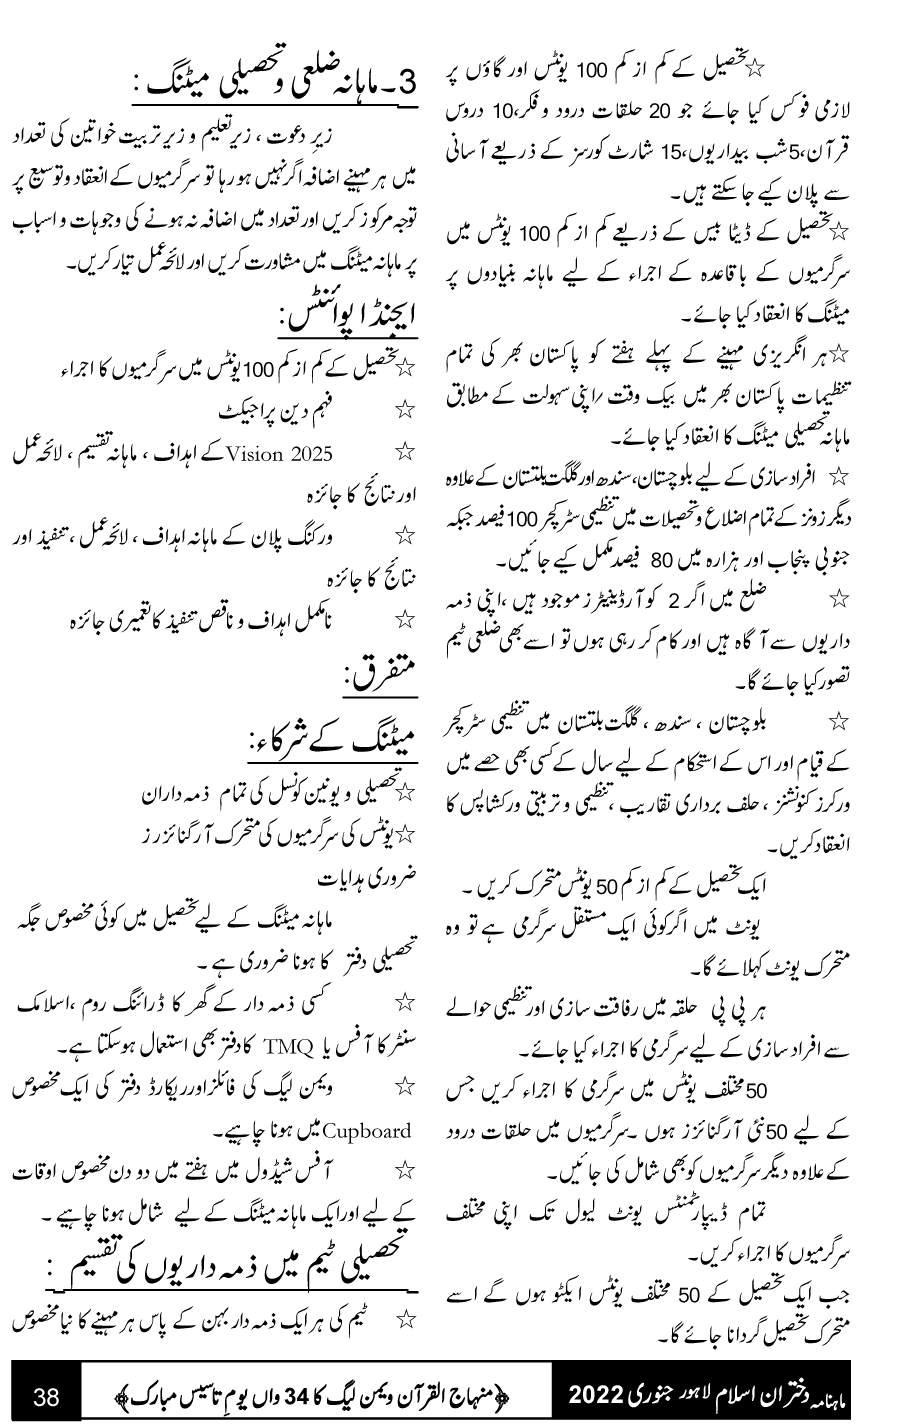 ☆تحصیل کے کم از کم 100 یونٹس اور گاؤں پر
لازمی فوکس کیا جائے جو 20 حلقات درود و فکر،10 دروس
قرآن،5شب بیداریوں،15 شارٹ کورسز کے ذریعے آسانی
سے پلان کیے جاسکتے ہیں۔
☆تحصیل کے ڈیٹا بیس کے ذریعے کم از کم 100 یونٹس میں
سرگرمیوں کے باقاعدہ کے اجراء کے لیے ماہانہ بنیادوں پر
میٹنگ کا انعقاد کیا جائے۔
☆ہر انگریزی مہینے کے پہلے ہفتے کو پاکستان بھر کی تمام
تنظیمات پاکستان بھر میں بیک وقت /اپنی سہولت کے مطابق
ماہانہ تحصیلی میٹنگ کا انعقاد کیا جائے۔
☆ افراد سازی کے لیے بلوچستان،سندھ اور گلگت بلتستان کے علاوہ
دیگر زونز کے تمام اضلاع وتحصیلات میں تنظیمی سٹرکچر 100 فیصد جبکہ
جنوبی پنجاب اور ہزارہ میں 80 فیصد مکمل کیے جائیں۔
☆ ضلع میں اگر 2 کوآرڈینیٹرز موجود ہیں ،اپنی ذمہ
داریوں سے آگاہ ہیں اور کام کر رہی ہوں تو اسے بھی ضلعی ٹیم
تصور کیا جائے گا۔
☆ بلوچستان ، سندھ ، گلگت بلتستان میں تنظیمی سٹرکچر
کے قیام اور اس کے استحکام کے لیے سال کے کسی بھی حصے میں
ورکرز کنونشنز ، حلف برداری تقاریب ،تنظیمی و تربیتی ورکشاپس کا
انعقاد کریں۔
ایک تحصیل کے کم از کم 50 یونٹس متحرک کریں ۔
یونٹ میں اگر کوئی ایک مستقل سرگرمی ہے تو وہ
متحرک یونٹ کہلائے گا۔
ہر پی پی حلقہ میں رفاقت سازی اور تنظیمی حوالے
سے افراد سازی کے لیے سرگرمی کا اجراء کیا جائے۔
50مختلف یونٹس میں سرگرمی کا اجراء کریں جس
کے لیے 50نئی آرگنائزز ہوں ۔سرگرمیوں میں حلقات درود
کے علاوہ دیگر سرگرمیوں کو بھی شامل کی جائیں۔
تمام ڈیپارٹمنٹس یونٹ لیول تک اپنی مختلف
سرگرمیوں کا اجراء کریں۔
جب ایک تحصیل کے 50 مختلف یونٹس ایکٹو ہوں گے اسے
متحرک تحصیل گردانا جائے گا۔
3۔ماہانہ ضلعی وتحصیلی میٹنگ :
زیرِ دعوت ، زیرِ تعلیم و زیرِ تربیت خواتین کی تعداد
میں ہر مہینے اضافہ اگر نہیں ہو رہا تو سرگرمیوں کے انعقاد وتوسیع پر
توجہ مرکوز کریں اور تعداد میں اضافہ نہ ہونے کی وجوہات و اسباب
پر ماہانہ میٹنگ میں مشاورت کریں اور لائحہ عمل تیار کریں۔
ایجنڈا پوائنٹس:
☆تحصیل کے کم از کم 100یونٹس میں سرگرمیوں کا اجراء
☆ فہم دین پراجیکٹ
☆ Vision 2025کے اہداف ، ماہانہ تقسیم ، لائحہ عمل
اور نتائج کا جائزہ
☆ ورکنگ پلان کے ماہانہ اہداف ، لائحہ عمل ،تنفیذ اور
نتائج کا جائزہ
☆ نامکمل اہداف و ناقص تنفیذ کا تعمیری جائزہ
متفرق:
میٹنگ کے شرکاء:
☆تحصیلی و یونین کونسل کی تمام ذمہ داران
☆یونٹس کی سرگرمیوں کی متحرک آرگنائزرز
ضروری ہدایات
ماہانہ میٹنگ کے لیے تحصیل میں کوئی مخصوص جگہ
تحصیلی دفتر کا ہونا ضروری ہے ۔
☆ کسی ذمہ دار کے گھر کا ڈرائنگ روم ،اسلامک
سنٹر کا آفس یا TMQ کا دفتر بھی استعمال ہوسکتا ہے۔
☆ ویمن لیگ کی فائلز اورریکارڈ دفتر کی ایک مخصوص
Cupboard میں ہونا چاہیے۔
☆ آفس شیڈول میں ہفتے میں دو دن مخصوص اوقات
کے لیے اور ایک ماہانہ میٹنگ کے لیے شامل ہونا چاہیے ۔
تحصیلی ٹیم میں ذمہ داریوں کی تقسیم :
☆ ٹیم کی ہر ایک ذمہ دار بہن کے پاس ہر مہینے کا نیا مخصوص
ماہنامہ دختران اسلام لاہور جنوری 2022
﴿منہاج القرآن ویمن لیگ کا 34 واں یومِ تاسیس مبارک﴾
38